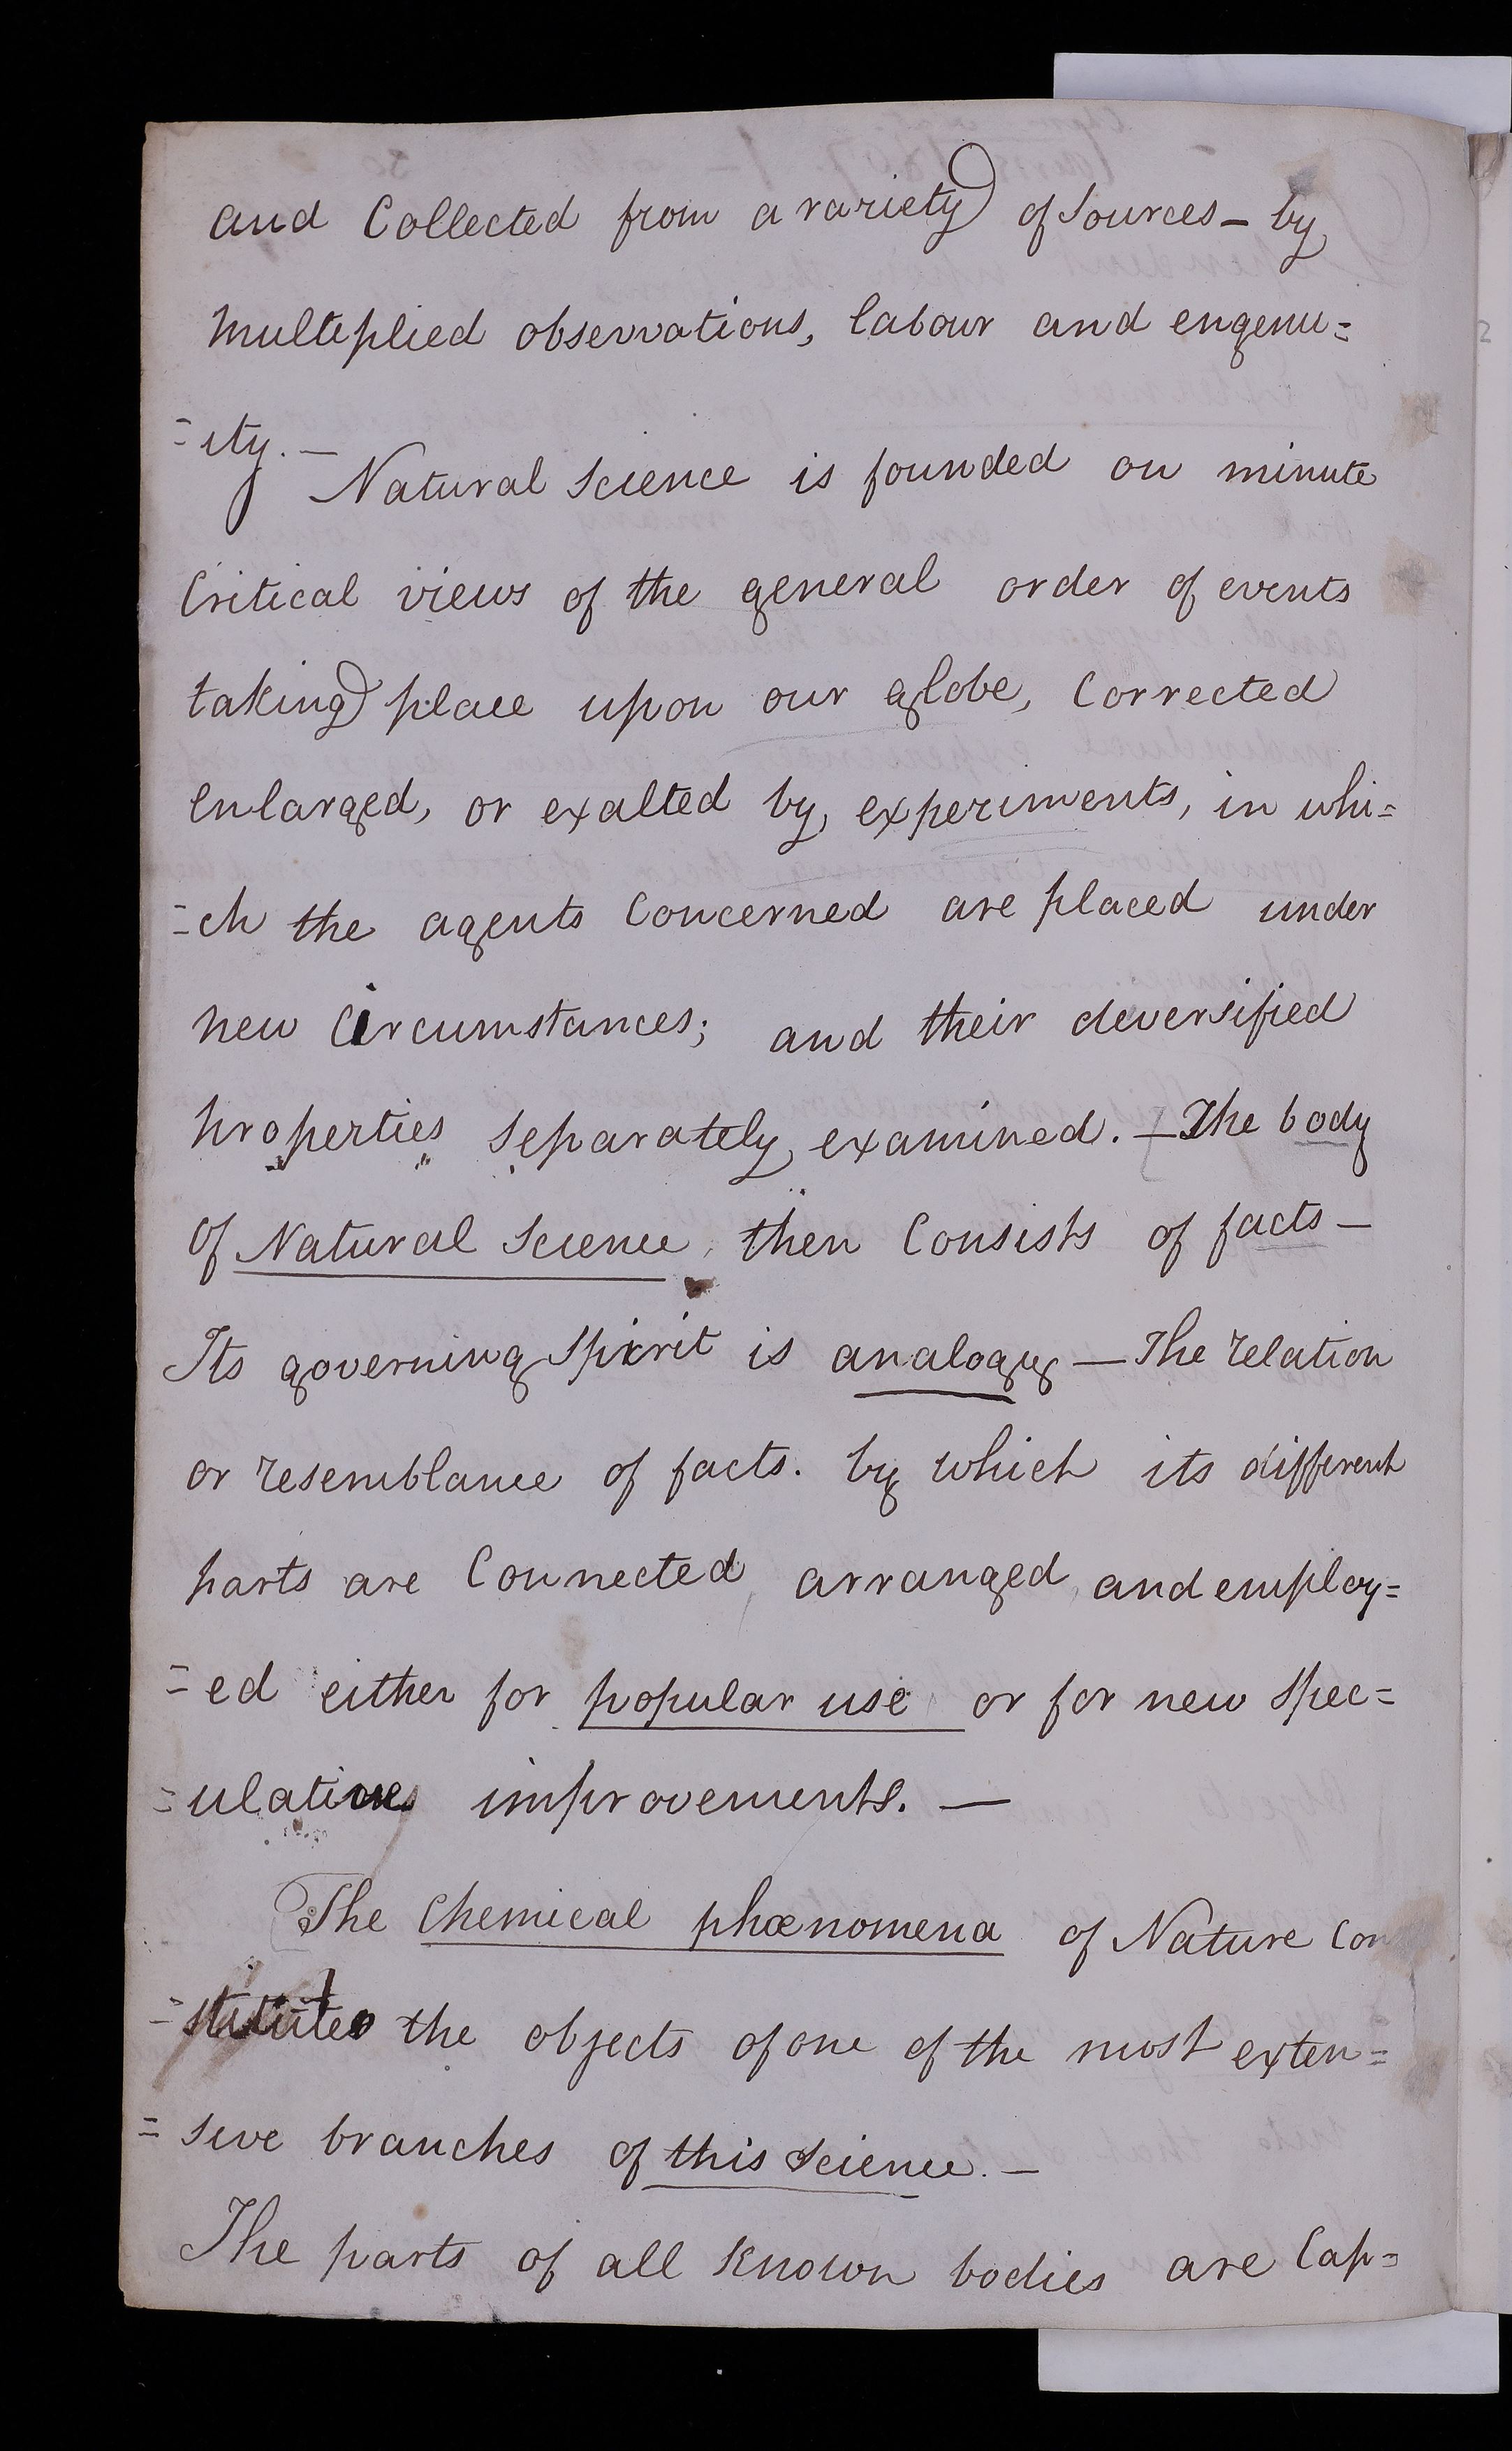 and Collected from a variety of Sources – by
multeplied observations, labour and engenu=
=ity. –
Natural Science is founded on minute
Critical views of the general order of events
taking place upon our globe, Corrected
enlarged, or exalted by, experiments, in whi=
=ch the agents Concerned are placed under
new Circumstances; and their deversified
properties separately, examined. – The body
of Natural Science, then Consists of facts –
Its governing Spirit is analogy – The relation
or resemblance of facts. by which its different
parts are Connected, arranged, and employ=
=ed either for popular use or for new Spec=
=ulative improvements. –
The Chemical phœnomena of Nature Con
=stitute the objects of one of the most exten=
=sive branches of this Science. –
The parts of all Known bodies are Cap=